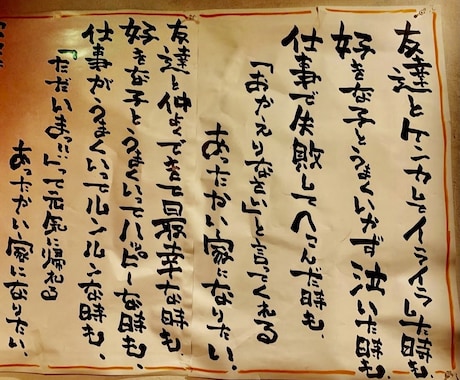 友達とケンカしてイライラした時も、
好きな子とうまくいかず泣いた時も、
仕事で失敗してへこんだ時も、
「おかえりなさい」と言ってくれる
あったかい家になりたい。
友達と仲よくできて最幸な時も、
好きな子とうまくいってハッピーな時も、
仕事がうまくいってルンルンな時も、
「ただいまっ!!」って元気に帰れる
あったかい家になりたい。